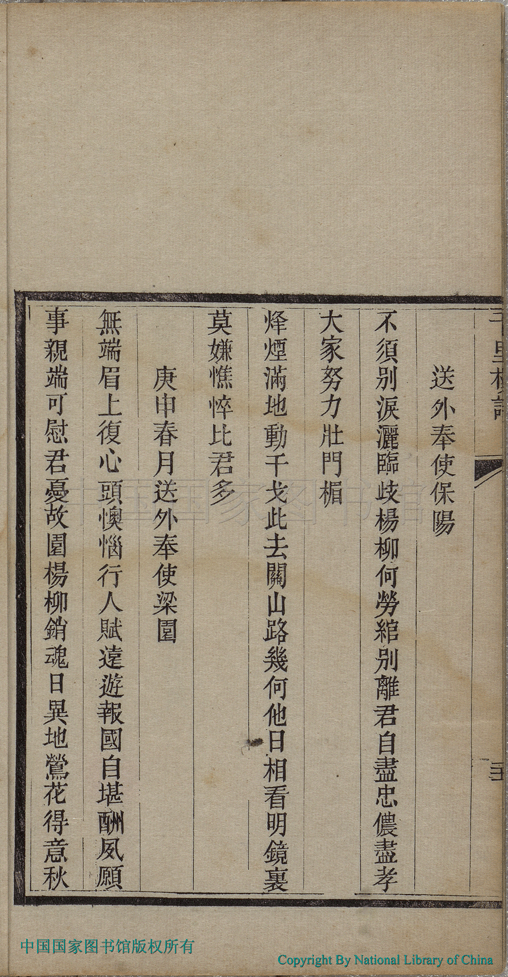 千里樓詩
送外奉使保陽
不須別淚灑臨歧楊柳何勞綰別離君自盡忠儂盡孝
大家努力壯門楣
烽煙滿地動干戈此去關山路幾何他日相看明鏡裏
莫嫌憔悴比君多
庚申春月送外奉使梁園
無端眉上復心頭懊惱行人賦遠遊報國自堪酬夙願
事親端可慰君憂故園楊柳銷魂日異地鶯花得意秋
中国国家图书馆版权所有
Copyright By National Library of China